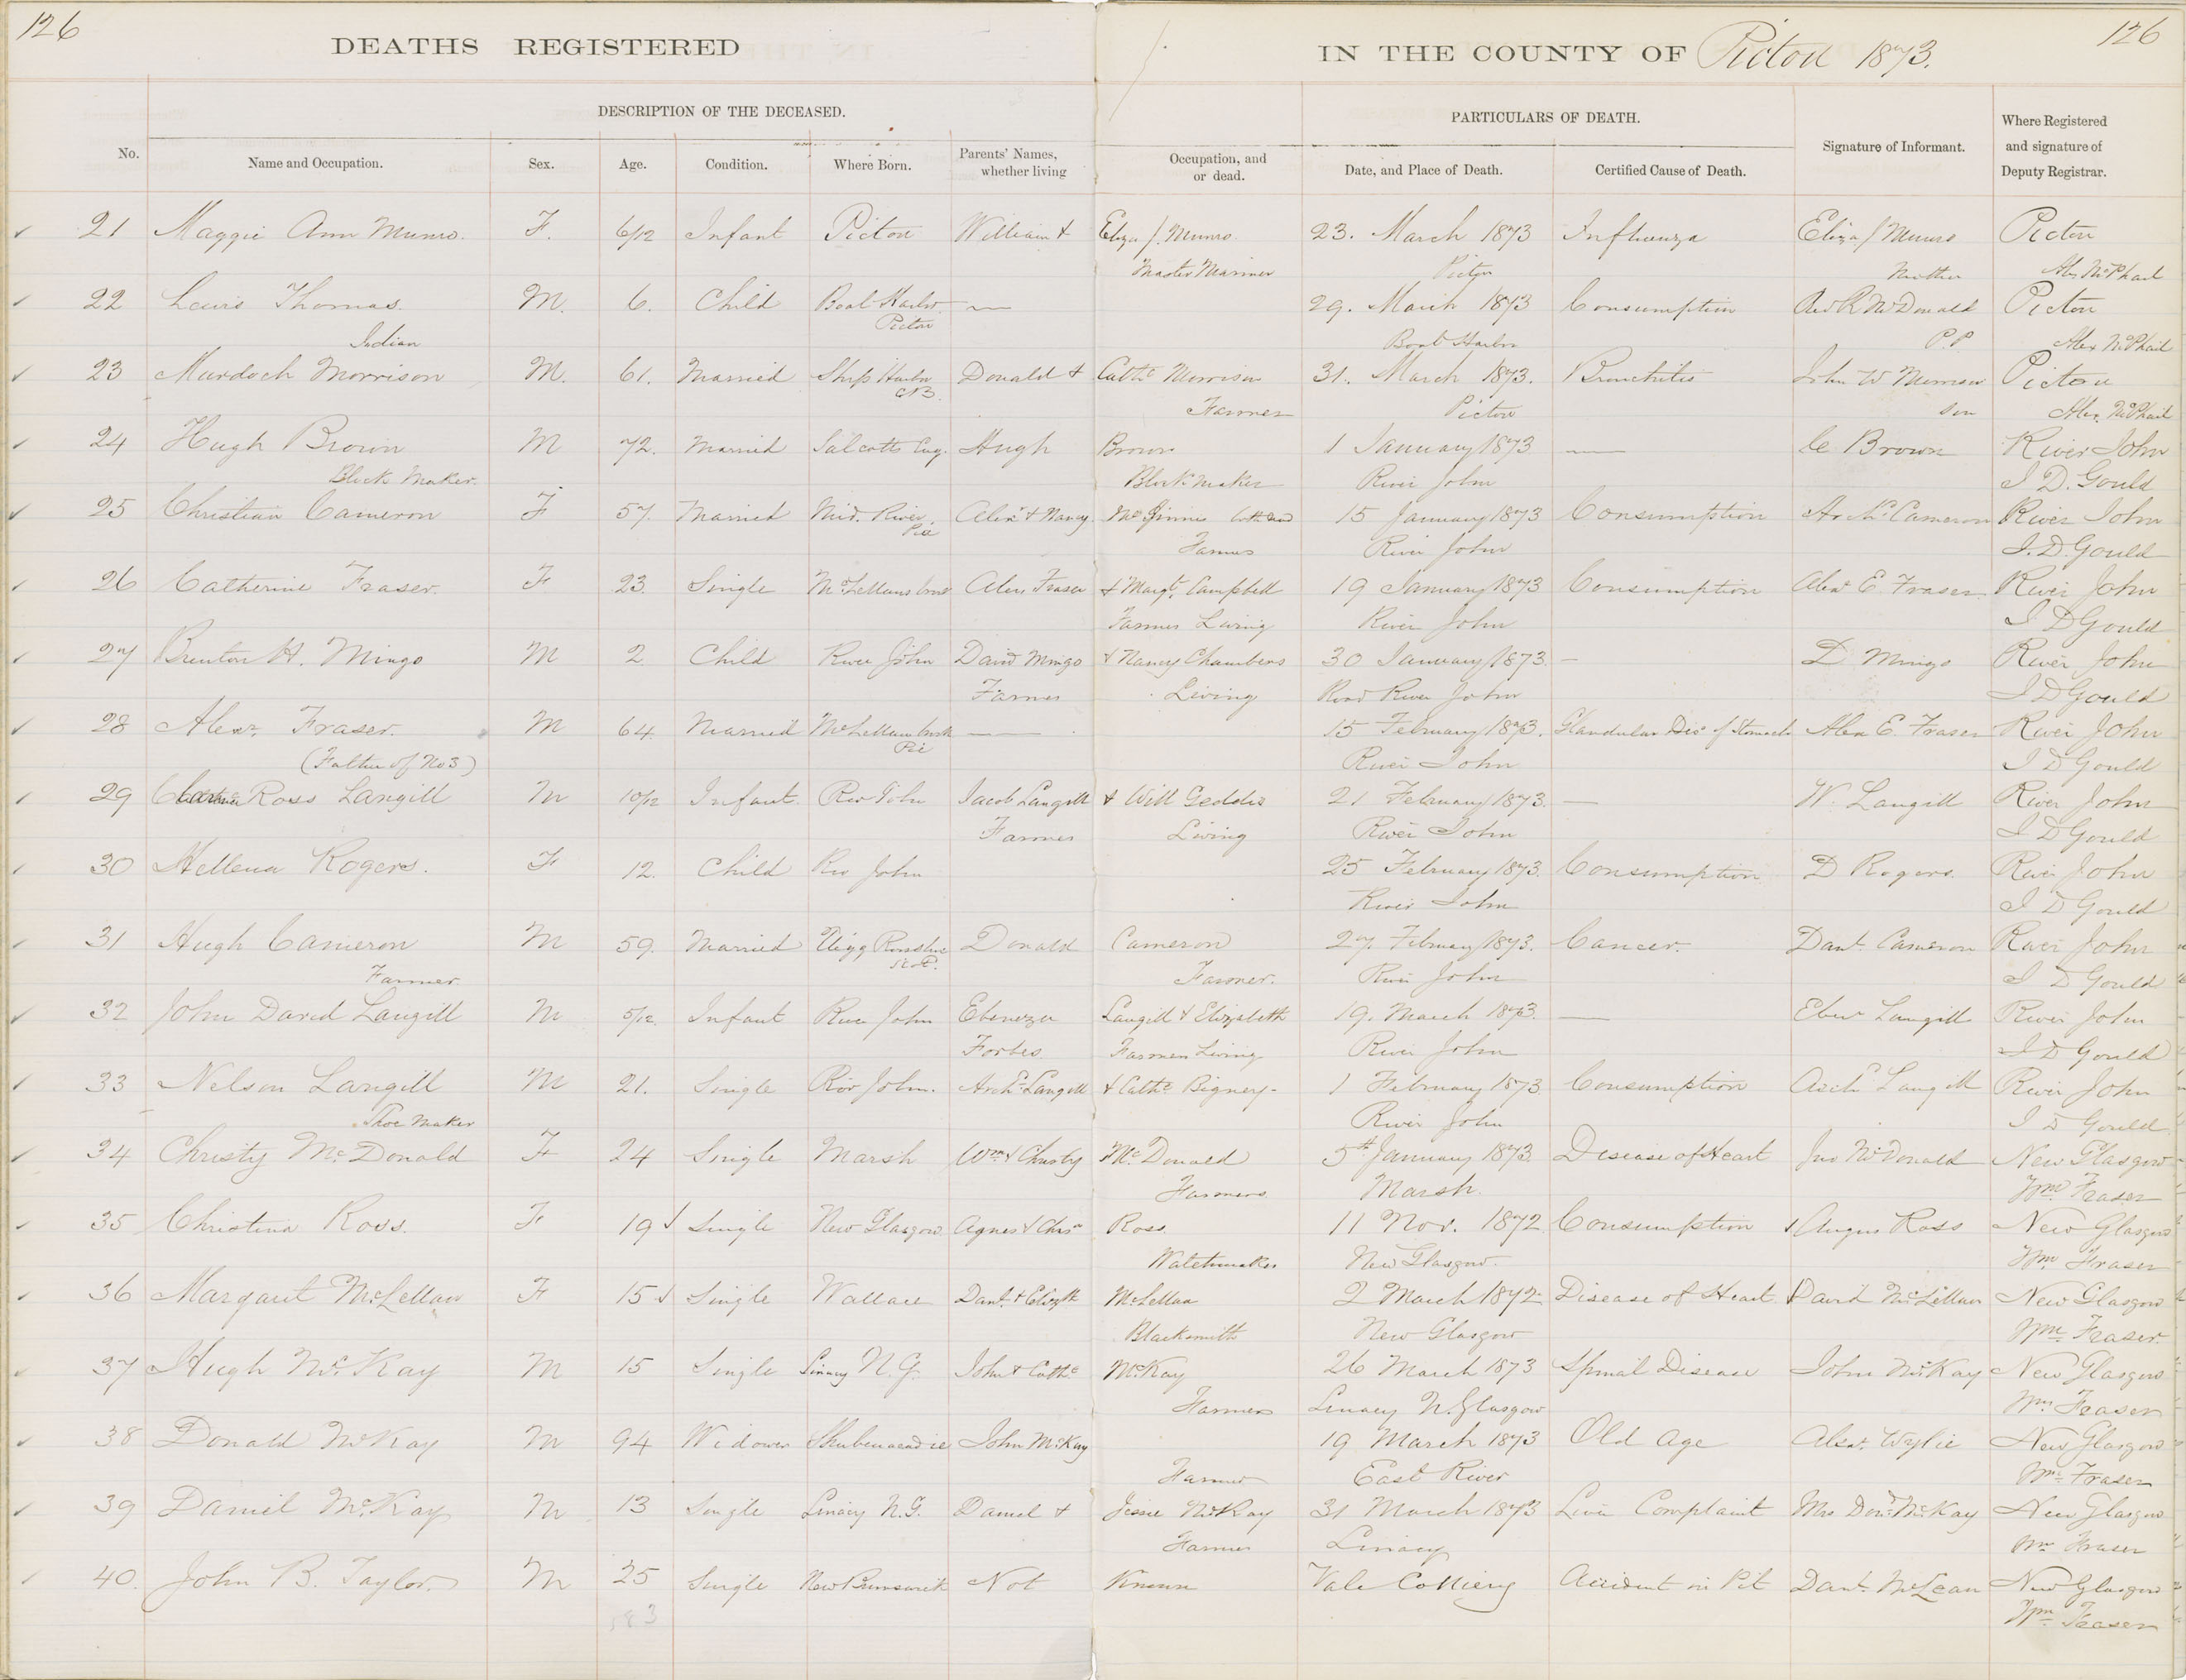 126
126
DEATHS REGISTERED IN THE COUNTY OF Pictou 1873.
DESCRIPTION OF THE DECEASED.
PARTICULARS OF DEATH.
No. Name and Occupation. Sex. Age. Condition. Where Born. Parents' Names, whether living Occupation, and or dead. Date, and Place of Death. Certified Cause of Death. Signature of Informant. Where Registered and signature of Deputy Registrar.
21 Maggie Ann Munro. F. 6/12 Infant Pictou William & Eliza J. Munro. 23. March 1873 Influenza Eliza J Munro Pictou
Master Mariner Pictou Mother Alex McPhail
22 Lewis Thomas. M. 6. Child Boat Harbor — 29. March 1873 Consumption Rev R McDonald Pictou
Indian Pictou Boat Harbor P.P Alex McPhail
23 Murdoch Morrison M. 61. Married Ship Harbor Donald & Cathe Morrison 31. March 1873. Bronchitis John W Morrison Pictou
C.B. Farmer Pictou Son Alex McPhail
24 Hugh Brown M 72. Married Salcotts Eng. Hugh Brown 1 January 1873 — C Brown River John
Block Maker. Block maker River John I D. Gould
25 Christian Cameron F 57. Married Mid. River Alexr & Nancy McGinnis both dead 15 January 1873 Consumption Cameron River John
Pic Farmer River John I. D. Gould
26 Catherine Fraser. F 23. Single McLellans brook Alex Fraser & Margt. Campbell 19 January 1873 Consumption Alexr E. Fraser River John
Farmer Living River John I D Gould
27 Brenton H. Mingo M 2 Child River John David Mingo & Nancy Chambers 30 January 1873. — D Mingo River John
Farmer Living Road River John I D Gould
28 Alexr. Fraser. M 64. Married McLellans brook — 15 February 1873. Glandular Dis. of Stomach Alex E. Fraser River John
(Father of No 3) Pic River John I D Gould
29 Ross Langill M 10/12 Infant. Riv John Jacob Langill & Will Geddis 21 February 1873. — W. Langill River John
Farmer Living River John I D Gould
30 Hellena Rogers. F 12. Child Riv John 25 February 1873. Consumption D Rogers. River John
River John I D Gould
31 Hugh Cameron M 59. Married Nigg Rosshire Donald Cameron 27. February 1873. Cancer. Danl. Cameron River John
Farmer Scot. Farmer. River John I D Gould
32 John David Langill M 5/12. Infant River John Ebenezer Langill & Elizabeth 19. March 1873. — Ebenr Langill River John
Forbes. Farmer Living River John I D Gould
33 Nelson Langill M 21. Single Riv John. Archd Langill & Cathe Bigney- 1 February 1873 Consumption Archd Langill River John
Shoe Maker River John I D Gould
34 Christy McDonald F 24 Single Marsh Wm & Christy McDonald 5th January 1873. Disease of Heart Jno McDonald New Glasgow
Farmers Marsh. Wm Fraser
35 Christina Ross. F 19 Single New Glasgow Agnes & Chrisr Ross. 11 Nov. 1872 Consumption Angus Ross New Glasgow
Watchmaker New Glasgow. Wm Fraser
36 Margaret McLellan F 15 Single Wallace Danl. & Elizth McLellan 2 March 1872 Disease of Heart. David McLellan New Glasgow
Blacksmith New Glasgow Wm Fraser.
37 Hugh McKay M 15 Single Linacy N. G. John & Cathe McKay 26 March 1873 Spinal Disease John McKay New Glasgow
Farmer Linacy N. Glasgow Wm Fraser
38 Donald McKay M 94 Widower Shubenacadie John McKay 19 March 1873 Old Age Alexr. Wylie New Glasgow
Farmer East River Wm Fraser
39 Daniel McKay M 13 Single Linacy N.G. Daniel & Jessie McKay 31 March 1873 Liver Complaint Mrs Dond McKay New Glasgow
Farmer Linacy Wm Fraser
40. John B. Taylor. M 25 Single New Brunswick Not Known Vale Colliery Accident in Pit Danl. McLean New Glasgow
583 Wm Fraser